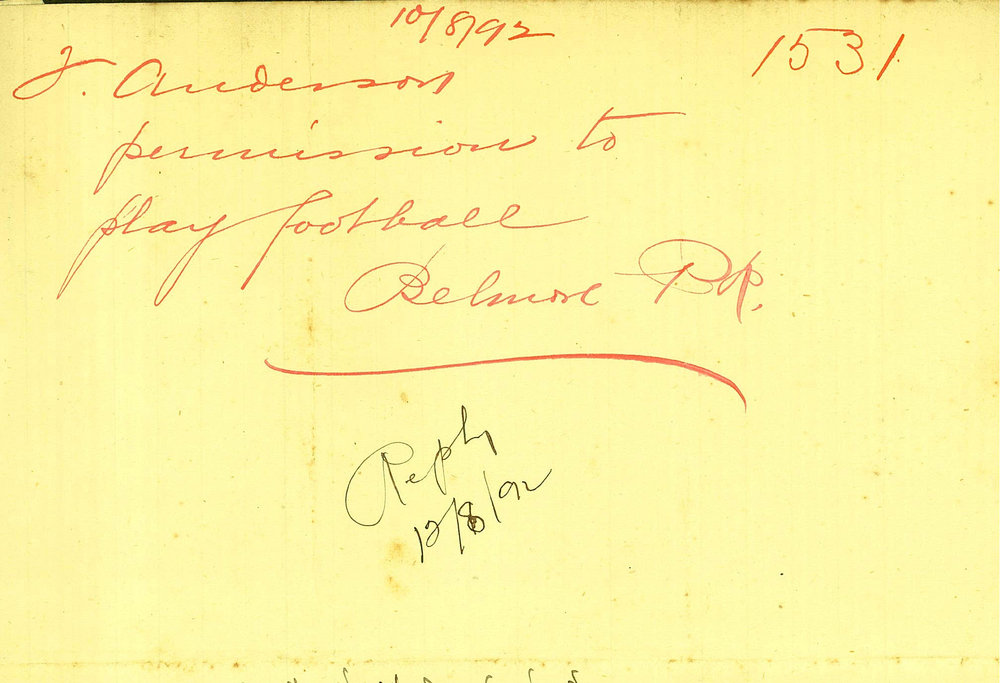 10/8/92
1531
J. Anderson
permission to
play football
Belmore Pk.
Reply
12/8/92